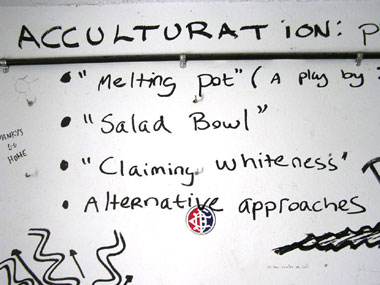 ACCULTURATION: P
• "Melting pot" (A play by :
• "Salad Bowl"
• "Claiming whiteness"
YANKYS
GO
HOME
• Alternative approaches